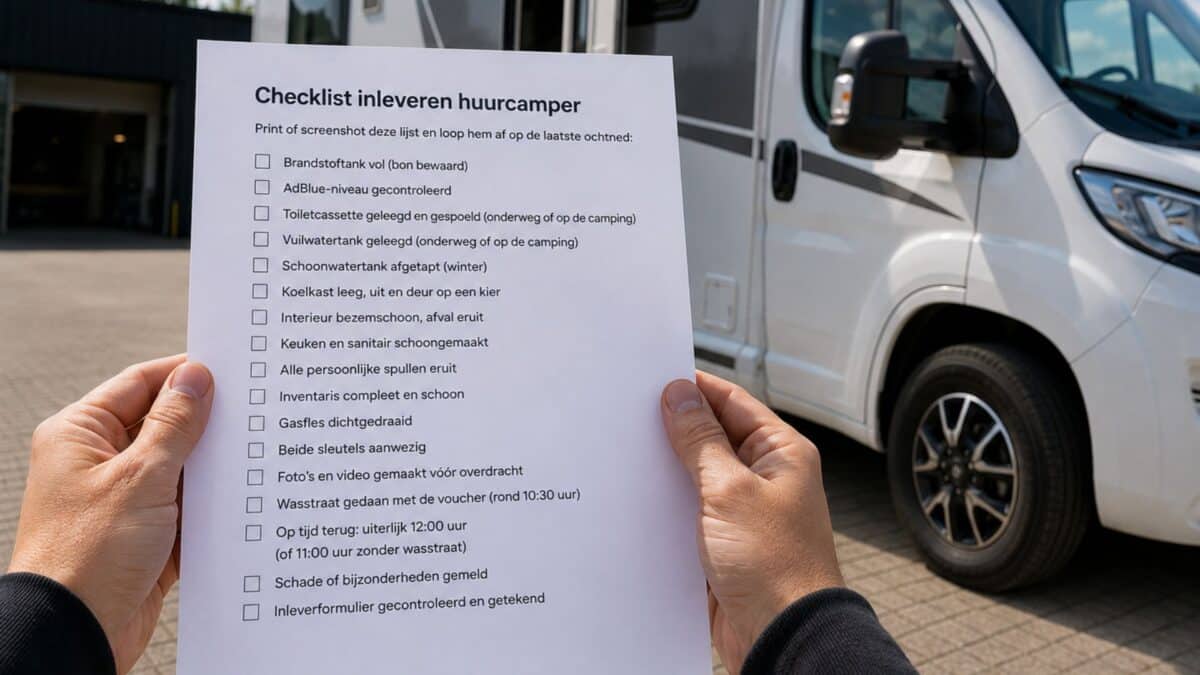 Checklist inleveren huurcamper
Print of screenshot deze lijst en loop hem af op de laatste ochtned:
Brandstoftank vol (bon bewaard)
AdBlue-niveau gecontroleerd
Toiletcassette geleegd en gespoeld (onderweg of op de camping)
Vuilwatertank geleegd (onderweg of op de camping)
Schoonwatertank afgetapt (winter)
Koelkast leeg, uit en deur op een kier
Interieur bezemschoon, afval eruit
Keuken en sanitair schoongemaakt
Alle persoonlijke spullen eruit
Inventaris compleet en schoon
Gasfles dichtgedraaid
Beide sleutels aanwezig
Foto's en video gemaakt vóór overdracht
Wasstraat gedaan met de voucher (rond 10:30 uur)
Op tijd terug: uiterlijk 12:00 uur
(of 11:00 uur zonder wasstraat)
Schade of bijzonderheden gemeld
Inleverformulier gecontroleerd en getekend